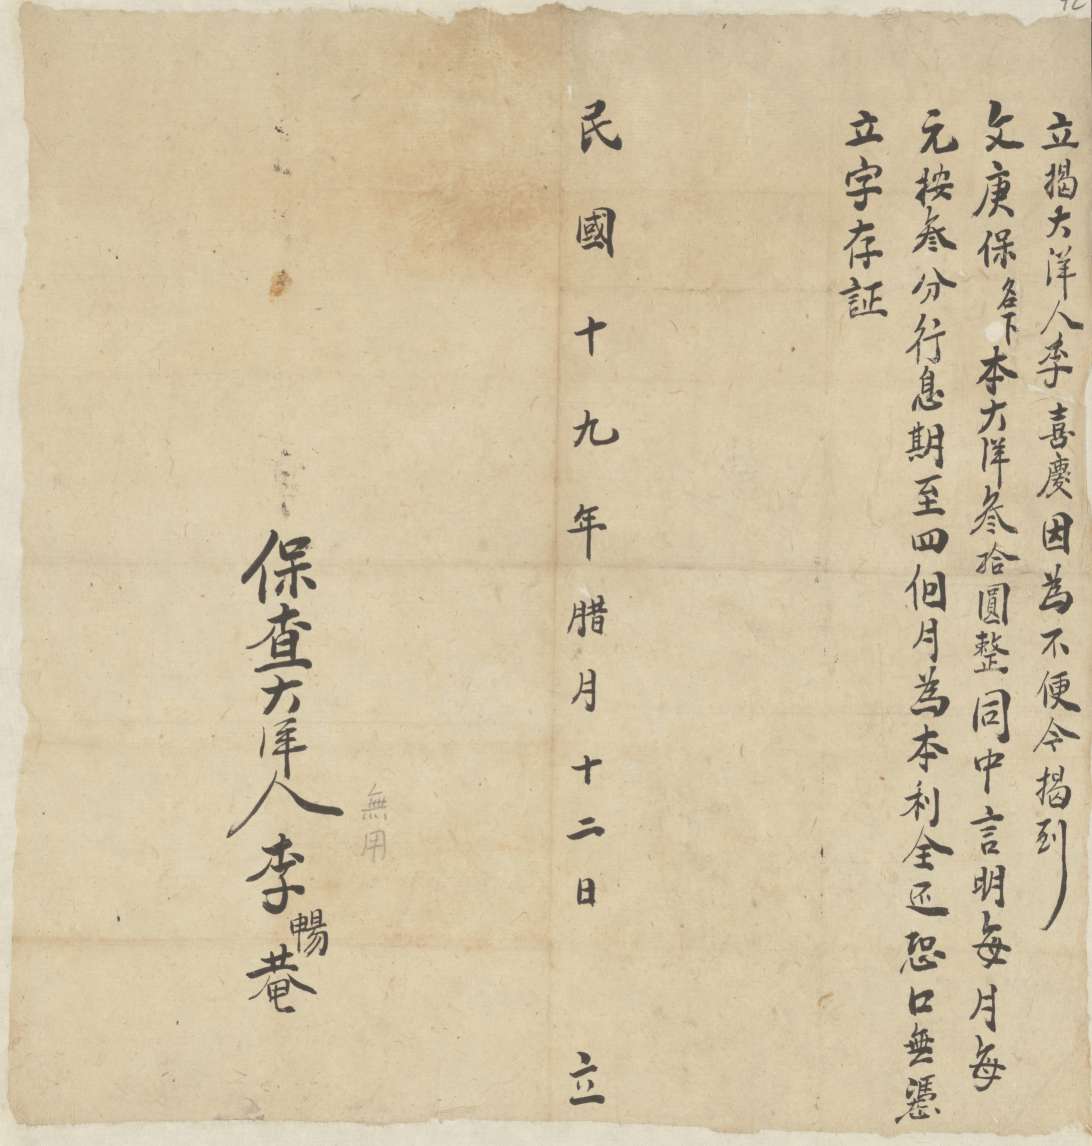 立揭大洋人李喜慶因為不便今揭到
文庚保名下本大洋叁拾圓整同中言明每月每
元按叁分行息期至四個月為本利全还恐口無憑
立字存証
民國十九年腊月十二日 立
無用
保查大洋人李暢菴